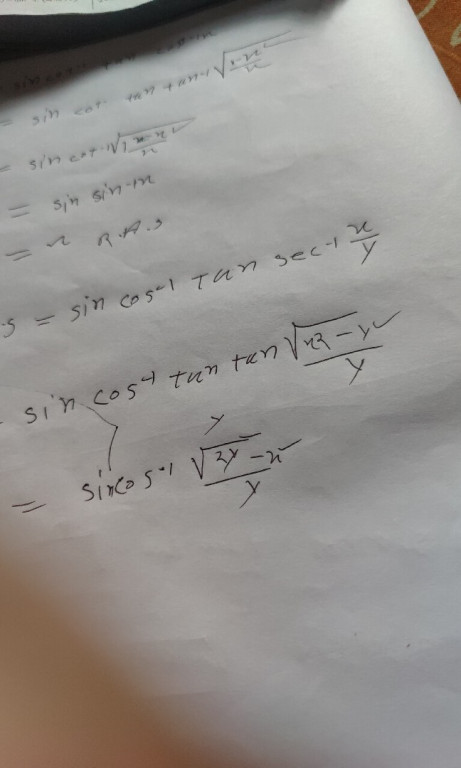 = sin cot⁻¹ tan tan⁻¹ √1-x²/x
= sin cot⁻¹ √1-x²/x
= sin sin⁻¹x
= x R.H.S
S = sin cos⁻¹ tan sec⁻¹ x/y
= sin cos⁻¹ tan tan √x²-y²/y
y
= sin cos⁻¹ √2y-x²/y